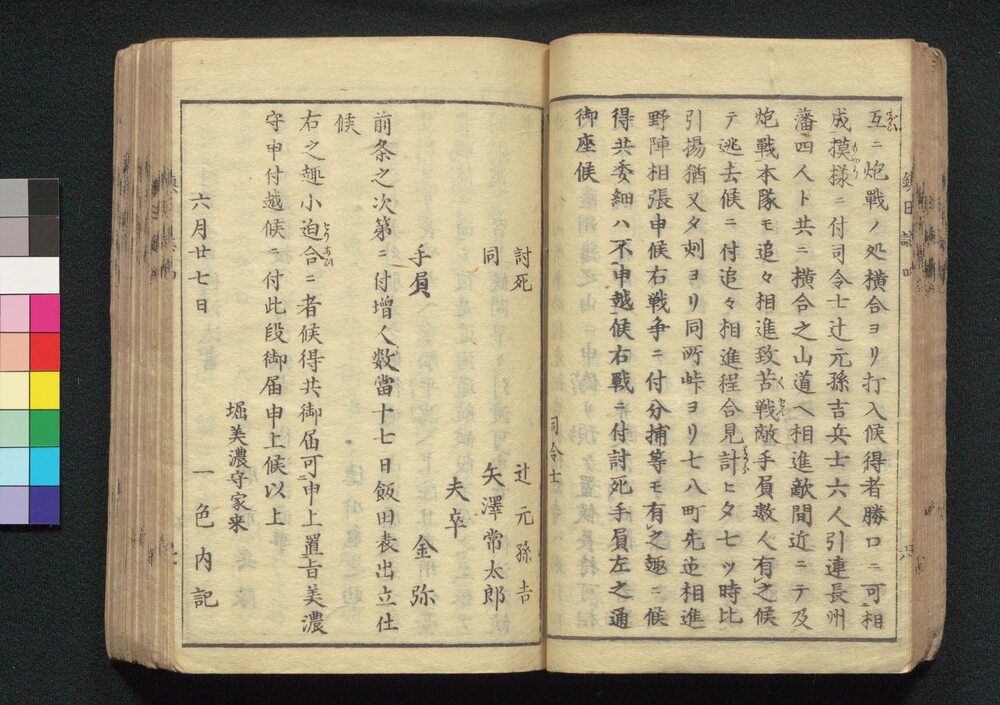 互ニ炮戰ノ処横合ヨリ打入候得者勝口ニ可相
成摸様ニ付司令士辻元孫吉兵士六人引連長州
藩四人ト共ニ横合之山道ヘ相進敵間近ニテ及
炮戰本隊モ追々相進致苦戦敵手負数人有之候
テ逃去候ニ付追々相進程合見計ヒタ七ツ時比
引揚猶又夕刻ヨリ同所峠ヨリ七八町先迠相進
野陣相張申候右戦争ニ付分捕等モ有之趣ニ候
得共委細ハ不申越候右戰ニ付討死手負左之通
御座候
司令士
討死 辻元孫吉
同 矢澤常太郎
夫卒
手負 金弥
前条之次第ニ付増人数當十七日飯田表出立仕
候
右之趣小迫合ニ者候得共御届可申上置旨美濃
守申付越候ニ付此段御届申上候以上
堀美濃守家来
六月廿七日 一色内記